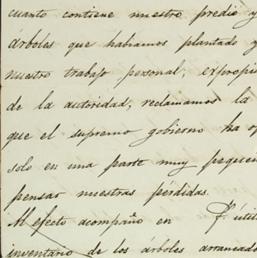 cuanto contiene nuestro predio y
árboles que habiamos plantado y
nuestro trabajo personal, expropi
de la autoridad, reclamamos la
que el supremo gobierno ha o
solo en una parte muy pequeñ
pensar nuestras pérdidas.
Al efecto acompaño en f. útil
inventario de los árboles arrancado